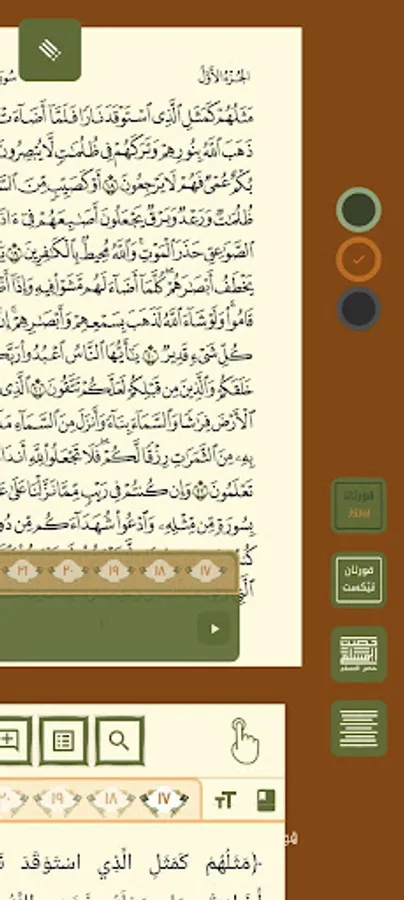 الجزء الأول
مَثَلُهُمْ كَمَثَلِ ٱلَّذِى ٱسْتَوْقَدَ نَارًا فَلَمَّآ أَضَآءَتْ
ذَهَبَ ٱللَّهُ بِنُورِهِمْ وَتَرَكَهُمْ فِى ظُلُمَٰتٍ لَّا يُبْصِرُونَ
بُكْمٌ عُمْىٌ فَهُمْ لَا يَرْجِعُونَ ١٨ أَوْ كَصَيِّبٍ مِّنَ
ظُلُمَٰتٌ وَرَعْدٌ وَبَرْقٌ يَجْعَلُونَ أَصَٰبِعَهُمْ فِىٓ
ٱلصَّوَٰعِقِ حَذَرَ ٱلْمَوْتِ وَٱللَّهُ مُحِيطٌۢ بِٱلْكَٰفِرِينَ ١٩
يَخْطَفُ أَبْصَٰرَهُمْ كُلَّمَآ أَضَآءَ لَهُم مَّشَوْا۟ فِيهِ وَإِذَآ
قَامُوا۟ وَلَوْ شَآءَ ٱللَّهُ لَذَهَبَ بِسَمْعِهِمْ وَأَبْصَٰرِهِمْ إِنَّ
كُلِّ شَىْءٍ قَدِيرٌ ٢٠ يَٰٓأَيُّهَا ٱلنَّاسُ ٱعْبُدُوا۟
خَلَقَكُمْ وَٱلَّذِينَ مِن قَبْلِكُمْ لَعَلَّكُمْ تَتَّقُونَ ٢١ ٱلَّذِى
ٱلْأَرْضَ فِرَٰشًا وَٱلسَّمَآءَ بِنَآءً وَأَنزَلَ مِنَ ٱلسَّمَآءِ
بِهِۦ مِنَ ٱلثَّمَرَٰتِ رِزْقًا لَّكُمْ فَلَا تَجْعَلُوا۟ لِلَّهِ
تَعْلَمُونَ ٢٢ وَإِن كُنتُمْ فِى رَيْبٍ مِّمَّا نَزَّلْنَا عَلَىٰ
بِسُورَةٍ مِّن مِّثْلِهِۦ وَٱدْعُوا۟ شُهَدَآءَكُم مِّن
١٧ ١٨ ١٩ ٢٠ ٢١
قورئان
قورئان
تێکست
١٧ ١٨ ١٩ ٢٠
﴿مَثَلُهُمْ كَمَثَلِ الَّذِي اسْتَوْقَدَ